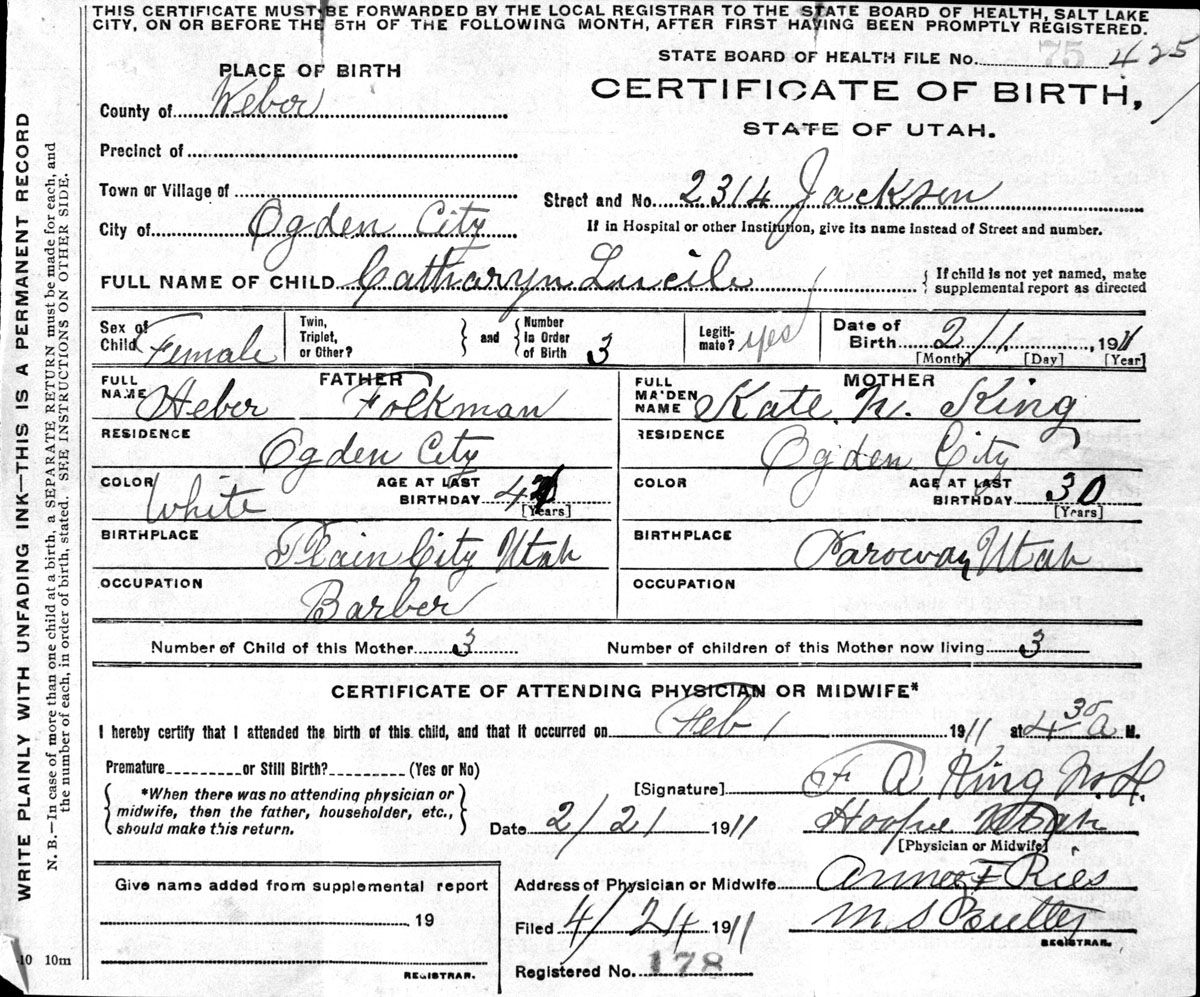 THIS CERTIFICATE MUST BE FORWARDED BY THE LOCAL REGISTRAR TO THE STATE BOARD OF HEALTH, SALT LAKE
CITY, ON OR BEFORE THE 5TH OF THE FOLLOWING MONTH, AFTER FIRST HAVING BEEN PROMPTLY REGISTERED.
STATE BOARD OF HEALTH FILE No. 75 425
PLACE OF BIRTH
CERTIFICATE OF BIRTH,
STATE OF UTAH.
County of Weber
Precinct of
Town or Village of
Street and No. 2314 Jackson
City of Ogden City
If in Hospital or other Institution, give its name instead of Street and number.
FULL NAME OF CHILD Catharyn Lucile
{ If child is not yet named, make
supplemental report as directed
Sex of Child Female
Twin, Triplet, or Other? } and { Number in Order of Birth 3
Legiti- mate? yes
Date of Birth 2/1, 1911
[Month] [Day] [Year]
FATHER
FULL NAME Heber Folkman
MOTHER
FULL MAIDEN NAME Kate. N. King
RESIDENCE Ogden City
RESIDENCE Ogden City
COLOR White
AGE AT LAST BIRTHDAY
[Years]
COLOR
AGE AT LAST BIRTHDAY 30
[Years]
BIRTHPLACE Plain City Utah
BIRTHPLACE Parowan Utah
OCCUPATION Barber
OCCUPATION
Number of Child of this Mother 3
Number of children of this Mother now living 3
CERTIFICATE OF ATTENDING PHYSICIAN OR MIDWIFE*
I hereby certify that I attended the birth of this child, and that it occurred on Feb 1 1911 at 4 30 a M.
Premature or Still Birth? (Yes or No)
{ *When there was no attending physician or
midwife, then the father, householder, etc.,
should make this return. }
[Signature] F A King
Date 2/21 1911
Utah
[Physician or Midwife]
Give name added from supplemental report
19
REGISTRAR.
Address of Physician or Midwife
Filed 4/24 1911
REGISTRAR.
Registered No. 178
10 10m
WRITE PLAINLY WITH UNFADING INK—THIS IS A PERMANENT RECORD
N. B.—In case of more than one child at a birth, a SEPARATE RETURN must be made for each, and
the number of each, in order of birth, stated. SEE INSTRUCTIONS ON OTHER SIDE.